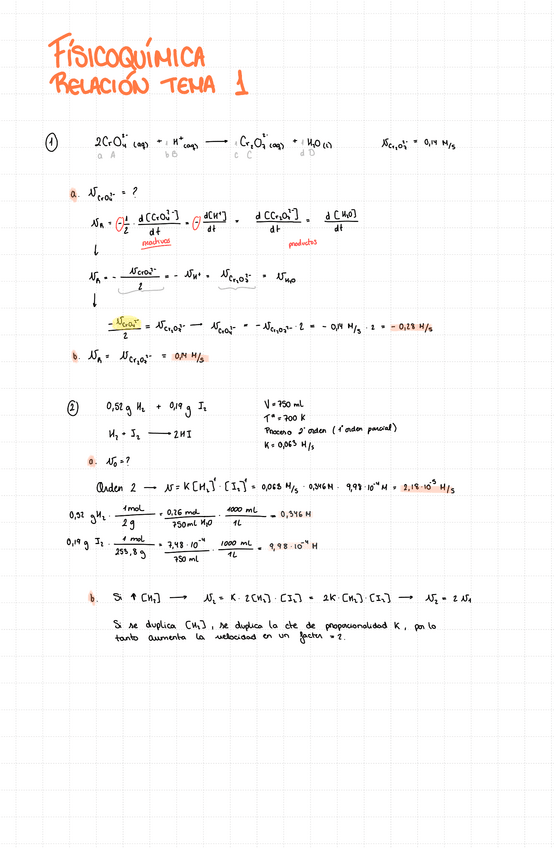 FÍSICOQUÍMICA
RELACIÓN TEMA 1
① 2CrO₄²⁻ (aq) + 1 H⁺ (aq) ⟶ 1 Cr₂O₇²⁻ (aq) + 1 H₂O (l) v Cr₂O₇²⁻ = 0,14 M/s
a A b B c C d D
a. v CrO₄²⁻ = ?
v_R = - 1/2 · d[CrO₄²⁻]/dt = - d[H⁺]/dt = d[Cr₂O₇²⁻]/dt = d[H₂O]/dt
reactivos productos
↓
v_R = - v CrO₄²⁻/2 = - v H⁺ = v Cr₂O₇²⁻ = v H₂O
↓
- v CrO₄²⁻/2 = v Cr₂O₇²⁻ ⟶ v CrO₄²⁻ = - v Cr₂O₇²⁻ · 2 = - 0,14 M/s · 2 = - 0,28 M/s
b. v_R = v Cr₂O₇²⁻ = 0,14 M/s
② 0,52 g H₂ + 0,19 g I₂ V = 750 mL
Tª = 700 K
H₂ + I₂ ⟶ 2HI Proceso 2º orden (1º orden parcial)
K = 0,063 M/s
a. v₀ = ?
Orden 2 ⟶ v = K [H₂]¹ · [I₂]¹ = 0,063 M/s · 0,346 M · 9,98·10⁻⁴ M = 2,18·10⁻⁵ M/s
0,52 g H₂ · 1 mol/2 g = 0,26 mol/750 mL H₂O · 1000 mL/1L = 0,346 M
0,19 g I₂ · 1 mol/253,8 g = 7,48·10⁻⁴/750 mL · 1000 mL/1L = 9,98·10⁻⁴ M
b. Si ↑ [H₂] ⟶ v₂ = K · 2[H₂] · [I₂] = 2K · [H₂] · [I₂] ⟶ v₂ = 2 v₁
Si se duplica [H₂], se duplica la cte de proporcionalidad K, por lo
tanto aumenta la velocidad en un factor = 2.